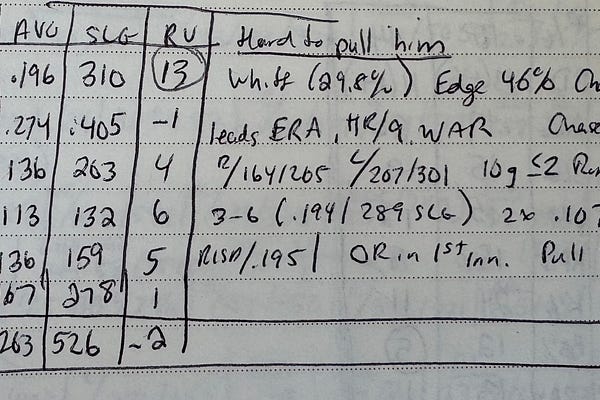 AVG SLG RV Hard to pull him
.196 310 13 Whiff (29.8%) Edge 46% Ch
.274 .405 -1 leads ERA, HR/9, WAR Chase
136 203 4 R/164/265 L/207/301 10g ≤2 Run
113 132 6 3-6 (.194/289 SLG) 2x .107
136 159 5 RISP/.195 OR in 1st inn. Pull
67 278 1
263 526 -2